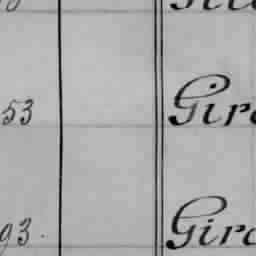 53 Giro
93. Giro